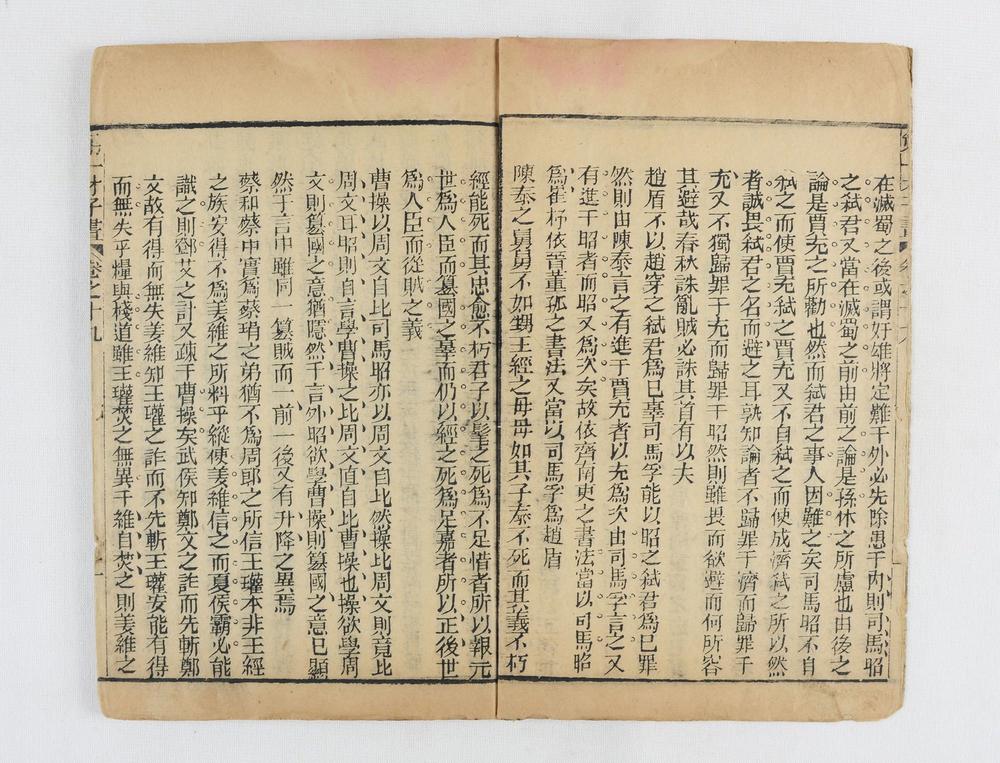 在滅蜀之後或謂奸雄將定難于外必先除患于內則司馬昭
之弒君又當在滅蜀之前由前之論是孫休之所慮也由後之
論是賈充之所勸也然而弒君之事人因難之矣司馬昭不自
弒之而使賈充弒之賈充又不自弒之而使成濟弒之所以然
者誠畏弒君之名而避之耳孰知論者不歸罪于濟而歸罪于
充又不獨歸罪于充而歸罪于昭然則雖畏而欲避而何所容
其避哉春秋誅亂賊必誅其首有以夫
趙盾不以趙穿之弒君爲已辜司馬孚能以昭之弒君爲已罪
然則由陳泰言之有進于賈充者以充爲次由司馬孚言之又
有進于昭者而昭又爲次矣故依齊南史之書法當以司馬昭
爲崔杼依晉董狐之書法又當以司馬孚爲趙盾
陳泰之舅舅不如甥王經之母母如其子泰不死而其義不朽
經能死而其忠愈不朽君子以髦之死爲不足惜者所以報元
世爲人臣而篡國之辜而仍以經之死爲足嘉者所以正後世
爲人臣而從賊之義
曹操以周文自比司馬昭亦以周文自比然操比周文則竟比
周文耳昭則自言學曹操之比周文直自比曹操也操欲學周
文則篡國之意猶隱然于言外昭欲學曹操則篡國之意已顯
然于言中雖同一篡賊而一前一後又有升降之異焉
蔡和蔡中實爲蔡瑁之弟猶不爲周郎之所信王瓘本非王經
之族安得不爲姜維之所料乎縱使姜維信之而夏侯霸必能
識之則鄧艾之計又疎于曹操矣武侯知鄭文之詐而先斬鄭
文故有得而無失姜維知王瓘之詐而不先斬王瓘安能有得
而無失乎糧與棧道雖王瓘焚之無異于維自焚之則姜維之
第一才子書
卷之十九